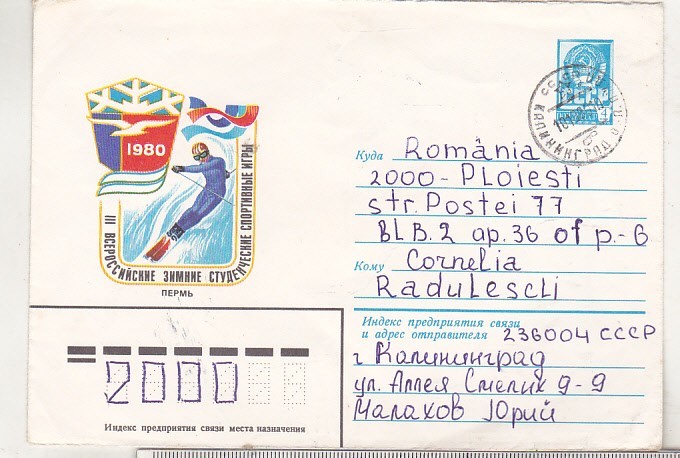 1980
III ВСЕРОССИЙСКИЕ ЗИМНИЕ СТУДЕНЧЕСКИЕ СПОРТИВНЫЕ ИГРЫ
ПЕРМЬ
СССР
КАЛИНИНГРАД
Куда România
2000 - Ploiesti
str. Postei 77
BL B.2 ap. 36 of p. - 6
Кому Cornelia
Radulescu
Индекс предприятия связи
и адрес отправителя 236004 СССР
г Калининград
ул. Аллея Смелых 9-9
Малахов Юрий
2000
Индекс предприятия связи места назначения